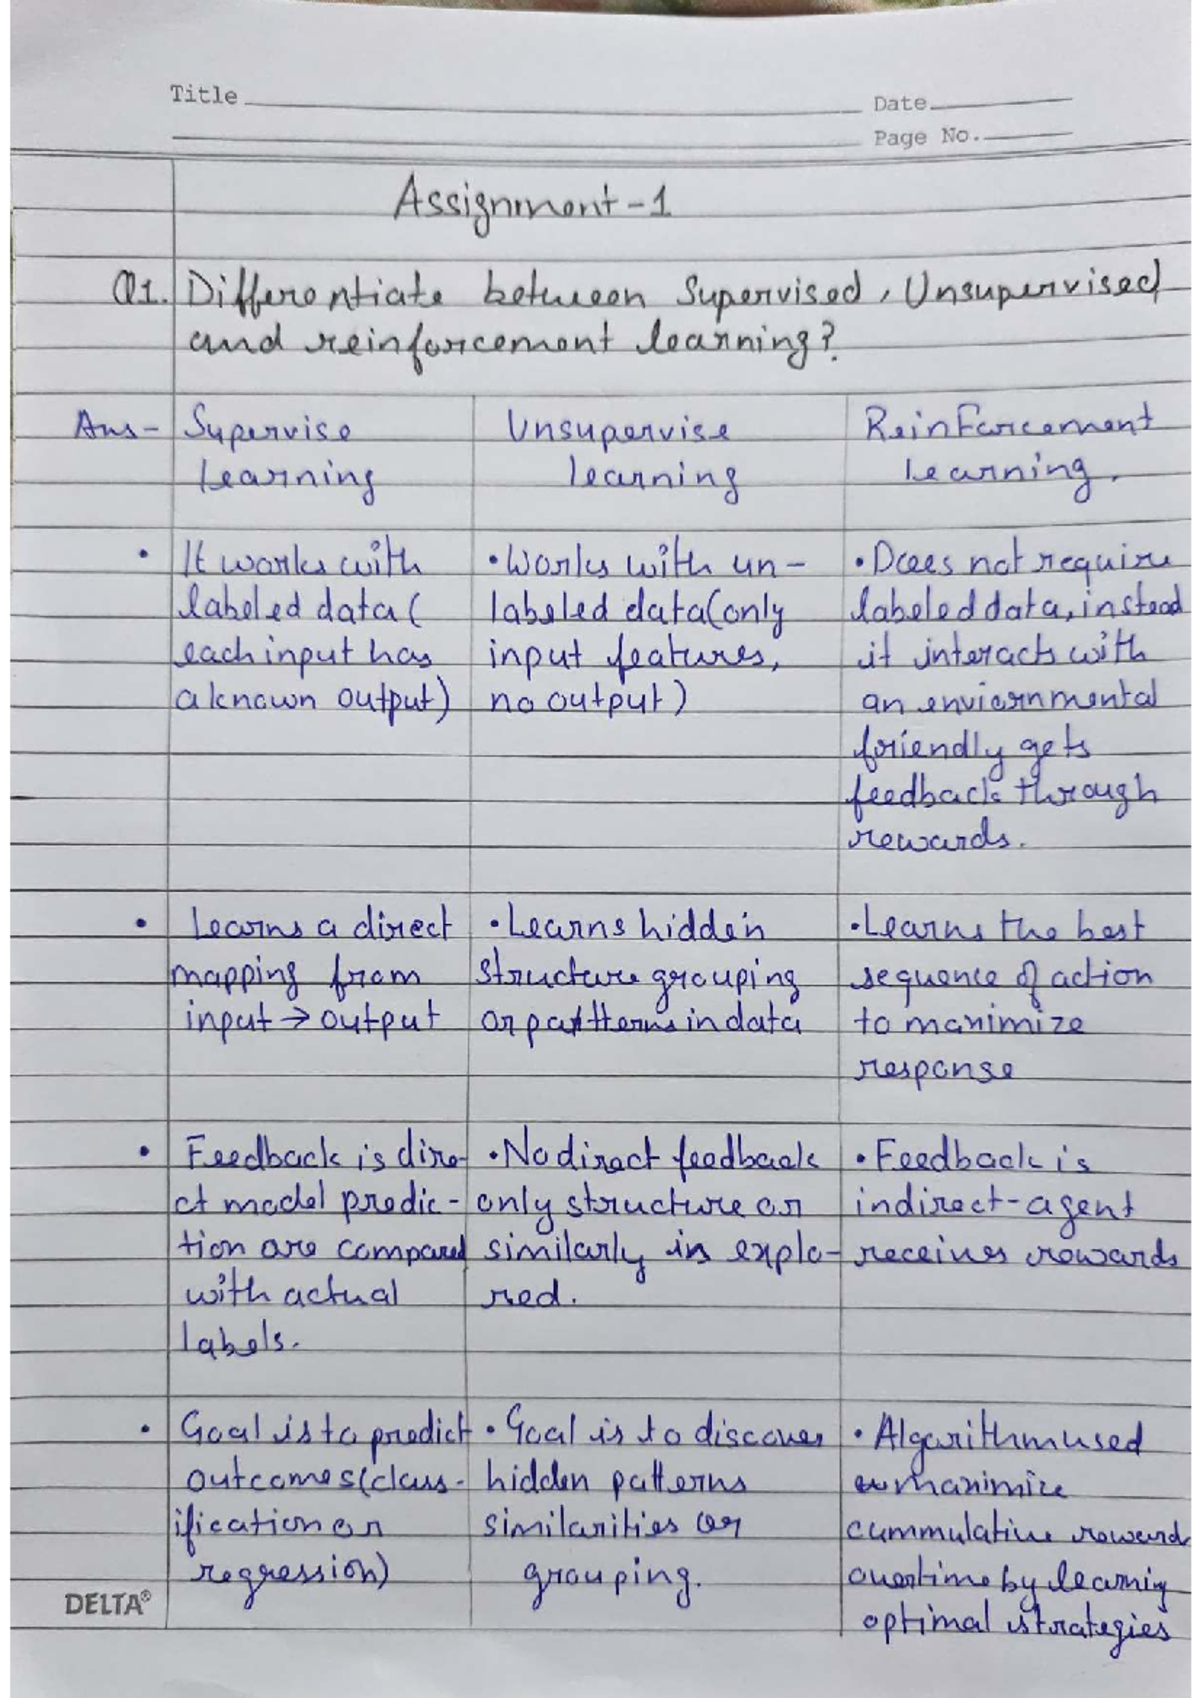 Title
Date
Page No.
Assignment-1
Q1. Differentiate between Supervised, Unsupervised
and reinforcement learning?
Ans- Supervise
learning
Unsupervise
learning
Reinforcement
learning.
• It works with
labeled data(
each input has
a known output)
• Works with un-
labeled data(only
input features,
no output)
• Does not require
labeled data, instead
it interacts with
an enviornmental
friendly gets
feedback through
rewards.
• Learns a direct
mapping from
input → output
• Learns hidden
structure grouping
or patterns in data
• Learns the best
sequence of action
to manimize
response
• Feedback is dire-
ct model predic-
tion are compared
with actual
labels.
• No direct feedback
only structure or
similarly is explo-
red.
• Feedback is
indirect-agent
receives rewards
• Goal is to predict
outcomes(class-
ification or
regression)
• Goal is to discover
hidden patterns
similarities or
grouping.
• Algorithm used
manimize
cummulative reward
overtime by learnig
optimal strategies
DELTA®